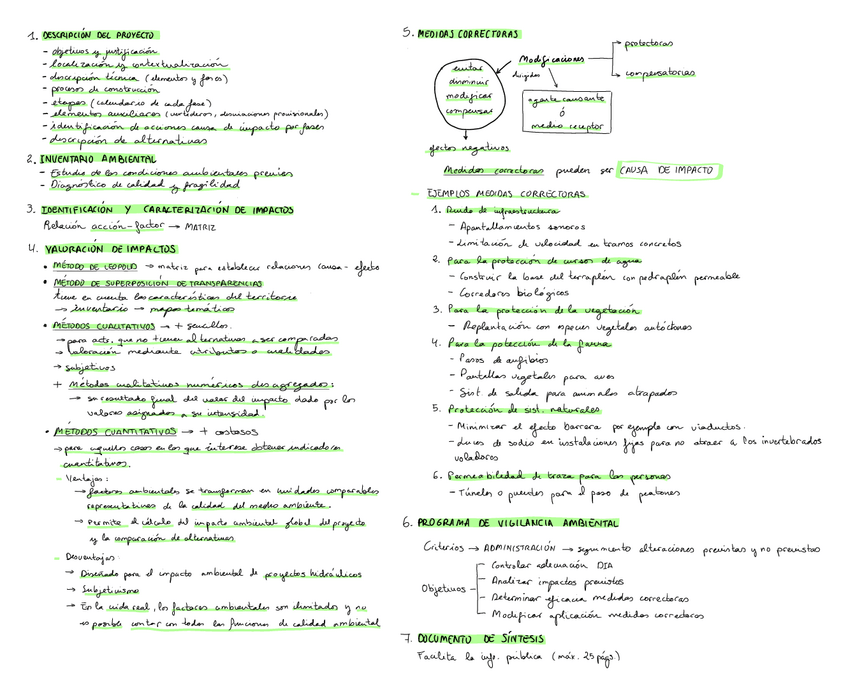 1. DESCRIPCIÓN DEL PROYECTO
- objetivos y justificación
- localización y contextualización
- descripción técnica (elementos y fases)
- procesos de construcción
- etapas (calendario de cada fase)
- elementos auxiliares (vertederos, desviaciones provisionales)
- identificación de acciones causa de impacto por fases
- descripción de alternativas
2. INVENTARIO AMBIENTAL
- Estudio de las condiciones ambientales previas
- Diagnóstico de calidad y fragilidad
3. IDENTIFICACIÓN Y CARACTERIZACIÓN DE IMPACTOS
Relación acción-factor → MATRIZ
4. VALORACIÓN DE IMPACTOS
• MÉTODO DE LEOPOLD → matriz para establecer relaciones causa-efecto
• MÉTODO DE SUPERPOSICIÓN DE TRANSPARENCIAS
tiene en cuenta las características del territorio
→ inventario → mapas temáticos
• MÉTODOS CUALITATIVOS → + sencillos.
→ para acts. que no tienen alternativas a ser comparadas
→ Valoración mediante atributos o cualidades
→ subjetivos
+ Métodos cualitativos numéricos desagregados:
→ su resultado final del valor del impacto dado por los
valores asignados a su intensidad.
• MÉTODOS CUANTITATIVOS → + costosos
→ para aquellos casos en los que interese obtener indicadores
cuantitativos.
- Ventajas:
→ factores ambientales se transforman en unidades comparables
representativas de la calidad del medio ambiente.
→ Permite el cálculo del impacto ambiental global del proyecto
y la comparación de alternativas
- Desventajas:
→ Diseñado para el impacto ambiental de proyectos hidráulicos
→ Subjetivismo
→ En la vida real, los factores ambientales son ilimitados y no
es posible contar con todas las funciones de calidad ambiental
5. MEDIDAS CORRECTORAS
Modificaciones
protectoras
compensatorias
evitar
disminuir
modificar
compensar
dirigidas
agente causante
ó
medio receptor
efectos negativos
Medidas correctoras pueden ser CAUSA DE IMPACTO
- EJEMPLOS MEDIDAS CORRECTORAS
1. Ruido de infraestructura
- Apantallamientos sonoros
- Limitación de velocidad en tramos concretos
2. Para la protección de cursos de agua
- Construir la base del terraplén con pedraplén permeable
- Corredores biológicos
3. Para la protección de la vegetación
- Replantación con especies vegetales autóctonas
4. Para la potección de la fauna
- Pasos de anfibios
- Pantallas vegetales para aves
- Sist. de salida para animales atrapados
5. Protección de sist. naturales
- Minimizar el efecto barrera por ejemplo con viaductos.
- Luces de sodio en instalaciones fijas para no atraer a los invertebrados
voladores
6. Permeabilidad de traza para las personas
- Túneles o puentes para el paso de peatones
6. PROGRAMA DE VIGILANCIA AMBIENTAL
Criterios → ADMINISTRACIÓN → seguimiento alteraciones previstas y no previstas
Objetivos
- Controlar adecuación DIA
- Analizar impactos previstos
- Determinar eficacia medidas correctoras
- Modificar aplicación medidas correctoras
7. DOCUMENTO DE SÍNTESIS
Facilita la inf. pública (máx. 25 págs.)